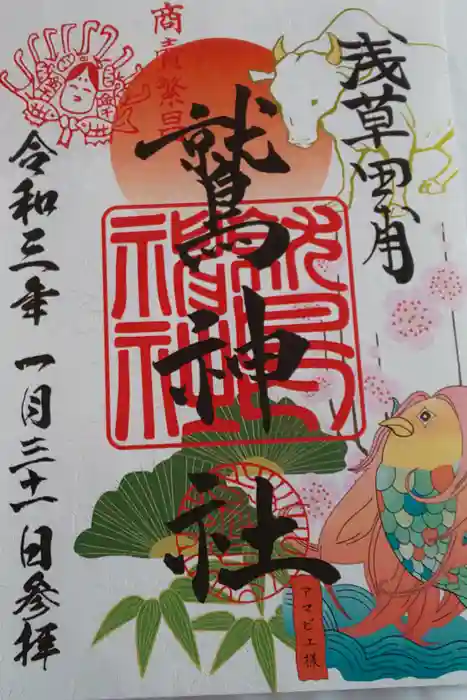 浅草田甫
商賣繁昌
鷲神社
令和三年 一月三十一日参拝
アマビエ様